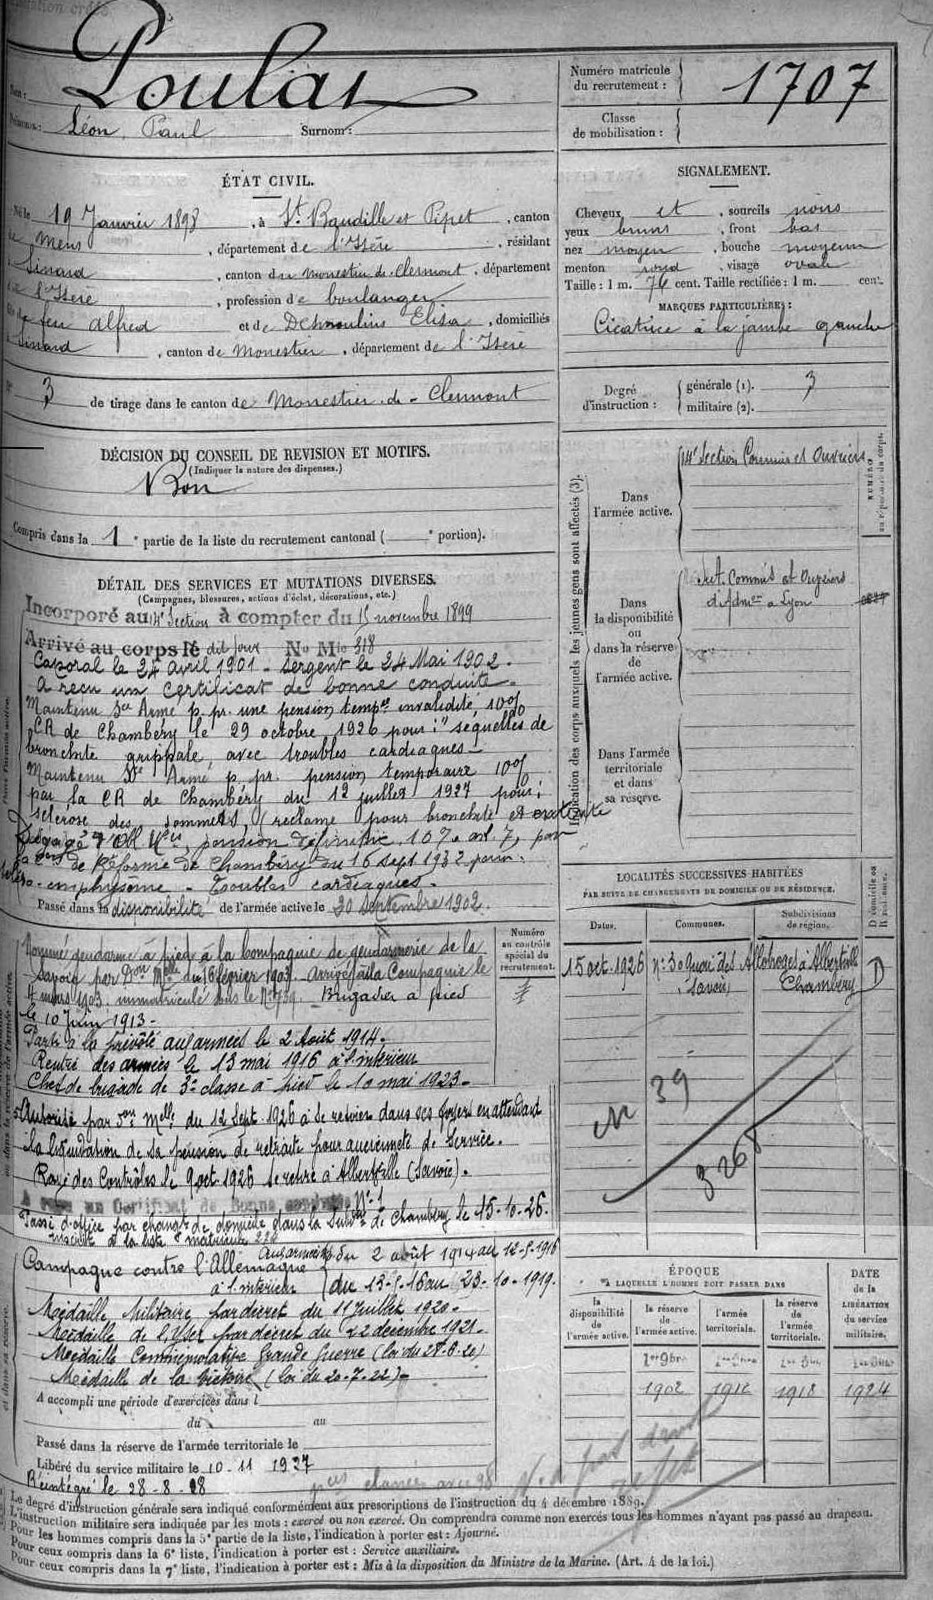 Nom : Poulat
Prénoms : Léon, Paul Surnom :
Numéro matricule du recrutement : 1707
Classe de mobilisation :
ÉTAT CIVIL.
Né le 19 Janvier 1898, à St. Baudille et Pipet, canton
de Mens, département de l'Isère, résidant
à Sinard, canton du Monestier de Clermont, département
de l'Isère, profession de boulanger
fils de feu Alfred et de Desmoulins Elisa, domiciliés
à Sinard, canton de Monestier, département de l'Isère
N° 3 de tirage dans le canton de Monestier-de-Clermont
SIGNALEMENT.
Cheveux et, sourcils noirs
yeux bruns, front bas
nez moyen, bouche moyenne
menton rond, visage ovale
Taille : 1 m. 76 cent. Taille rectifiée : 1 m. cent.
MARQUES PARTICULIÈRES :
Cicatrice à la jambe gauche
Degré d'instruction : générale (1). 3
militaire (2).
DÉCISION DU CONSEIL DE REVISION ET MOTIFS.
(Indiquer la nature des dispenses.)
Bon
Compris dans la 1e partie de la liste du recrutement cantonal ( e portion).
DÉTAIL DES SERVICES ET MUTATIONS DIVERSES.
(Campagnes, blessures, actions d'éclat, décorations, etc.)
Incorporé au 14e Section à compter du 15 novembre 1899
Arrivé au corps le dit jour No Mle 318
Caporal le 24 avril 1901 - Sergent le 24 Mai 1902 -
A reçu un certificat de bonne conduite.
Maintenu Sce Armé p. pr. une pension tempre invalidité 10%
CR de Chambéry le 29 octobre 1926 pour : "séquelles de
bronchite grippale, avec troubles cardiaques -
Maintenu Sce Armé p. pr. pension temporaire 10%
par la CR de Chambéry du 12 juillet 1927 pour :
sclérose des sommets, (réclame pour bronchite et
pension définitive 10% art. 7, par
de Réforme de Chambéry du 16 Sept 1932 pour :
emphysème - Troubles cardiaques -
Passé dans la disponibilité de l'armée active le 20 septembre 1902.
Indication des corps auxquels les jeunes gens sont affectés (3).
NUMÉRO au répertoire du corps.
Dans l'armée active.
14e Section Commis et Ouvriers
Dans la disponibilité ou dans la réserve de l'armée active.
Sect. Commis et Ouvriers
d'Admon à Lyon
Dans l'armée territoriale et dans sa réserve.
LOCALITÉS SUCCESSIVES HABITÉES
PAR SUITE DE CHANGEMENTS DE DOMICILE OU DE RÉSIDENCE.
Dates. Communes. Subdivisions de région. D domicile ou R résidence.
15 oct. 1926 N° 30 Quai des Allobroges à Albertville
(Savoie) Chambéry D
N 39
3268
Numéro au contrôle spécial du recrutement.
Nommé gendarme à pied à la Compagnie de gendarmerie de la
Savoie par Don Mlle du 16 février 1903. Arrivé à la Compagnie le
4 mars 1903, immatriculé sous le N° 939. Brigadier à pied
le 10 Juin 1913 -
Parti à la prévôté aux armées le 2 Août 1914.
Rentré des armées le 13 mai 1916 à l'intérieur
Chef de brigade de 3e classe à pied le 10 mai 1923 -
Autorisé par Don Mlle du 12 Sept. 1926 à se retirer dans ses foyers en attendant
la liquidation de sa pension de retraite pour ancienneté de Service.
Rayé des Contrôles le 9 oct. 1926 se retire à Albertville (Savoie).
A reçu un Certificat de Bonne conduite N° 1
Passé d'office par changt de domicile dans la Subdon de Chambéry le 15-10-26.
inscrit à la liste matricule
Campagne contre l'Allemagne
Aux armées du 2 août 1914 au 12-5-1916
à l'intérieur du 13-5-16 au 23-10-1919.
Médaille Militaire par décret du 11 Juillet 1920.
Médaille de l'Yser par décret du 22 décembre 1921.
Médaille Commémorative Grande Guerre (loi du 28-6-20)
Médaille de la Victoire (loi du 20-7-22) -
A accompli une période d'exercices dans l
du au
Passé dans la réserve de l'armée territoriale le
Libéré du service militaire le 10-11 1927
Réintégré le 28-8-28
classé avec 98
ÉPOQUE
À LAQUELLE L'HOMME DOIT PASSER DANS
la disponibilité de l'armée active.
la réserve de l'armée active.
l'armée territoriale.
la réserve de l'armée territoriale.
DATE de la LIBÉRATION du service militaire.
1er 9bre
1902 1912 1918 1924
Le degré d'instruction générale sera indiqué conformément aux prescriptions de l'instruction du 4 décembre 1889.
L'instruction militaire sera indiquée par les mots : exercé ou non exercé. On comprendra comme non exercés tous les hommes n'ayant pas passé au drapeau.
Pour les hommes compris dans la 5e partie de la liste, l'indication à porter est : Ajourné.
Pour ceux compris dans la 6e liste, l'indication à porter est : Service auxiliaire.
Pour ceux compris dans la 7e liste, l'indication à porter est : Mis à la disposition du Ministre de la Marine. (Art. 4 de la loi.)